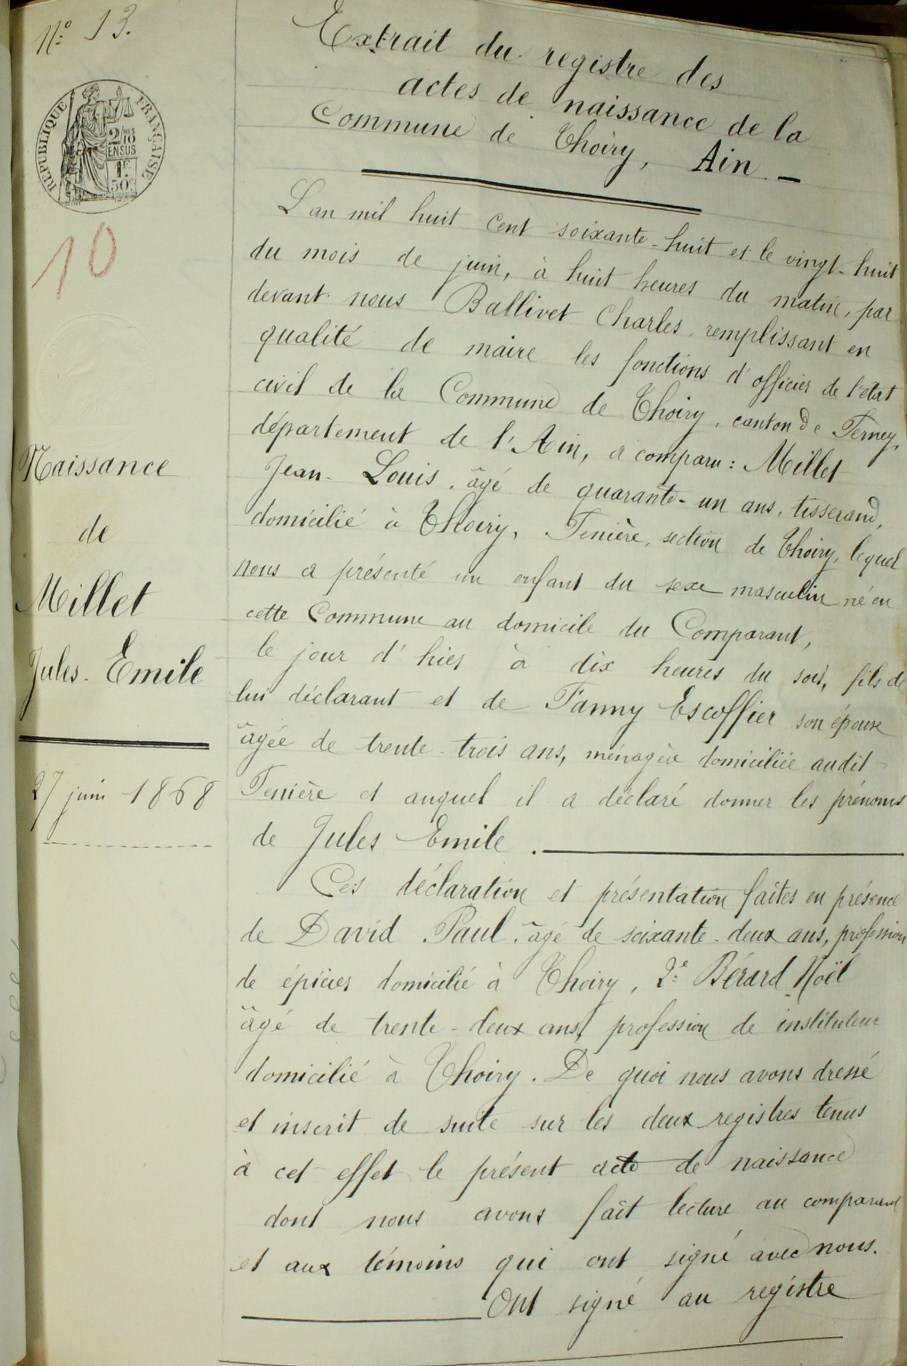 N:o 13.
RÉPUBLIQUE FRANÇAISE
2/10
EN SUS
1F
50c
10
Naissance
de
Millet
Jules-Emile
27 juin 1868
Extrait du registre des
actes de naissance de la
Commune de Thoiry, Ain._
L'an mil huit cent soixante-huit et le vingt-huit
du mois de juin, à huit heures du matin, par
devant nous Ballivet Charles remplissant en
qualité de maire les fonctions d'officier de l'état
civil de la Commune de Thoiry, canton de Ferney,
département de l'Ain, a comparu: Millet
Jean-Louis, âgé de quarante-un ans, tisserand,
domicilié à Thoiry, Fenière, section de Thoiry, lequel
nous a présenté un enfant du sexe masculin né en
cette Commune au domicile du Comparant,
le jour d'hier à dix heures du soir, fils de
lui déclarant et de Fanny Escoffier son épouse
âgée de trente-trois ans, ménagère domiciliée audit
Fenière et auquel il a déclaré donner les prénoms
de Jules Emile.
Ces déclaration et présentation faites en présence
de David Paul, âgé de soixante-deux ans, profession
de épicier domicilié à Thoiry, 2:e Bérard Noël
âgé de trente-deux ans, profession de instituteur
domicilié à Thoiry. De quoi nous avons dressé
et inscrit de suite sur les deux registres tenus
à cet effet le présent acte de naissance
dont nous avons fait lecture au comparant
et aux témoins qui ont signé avec nous.
Ont signé au registre